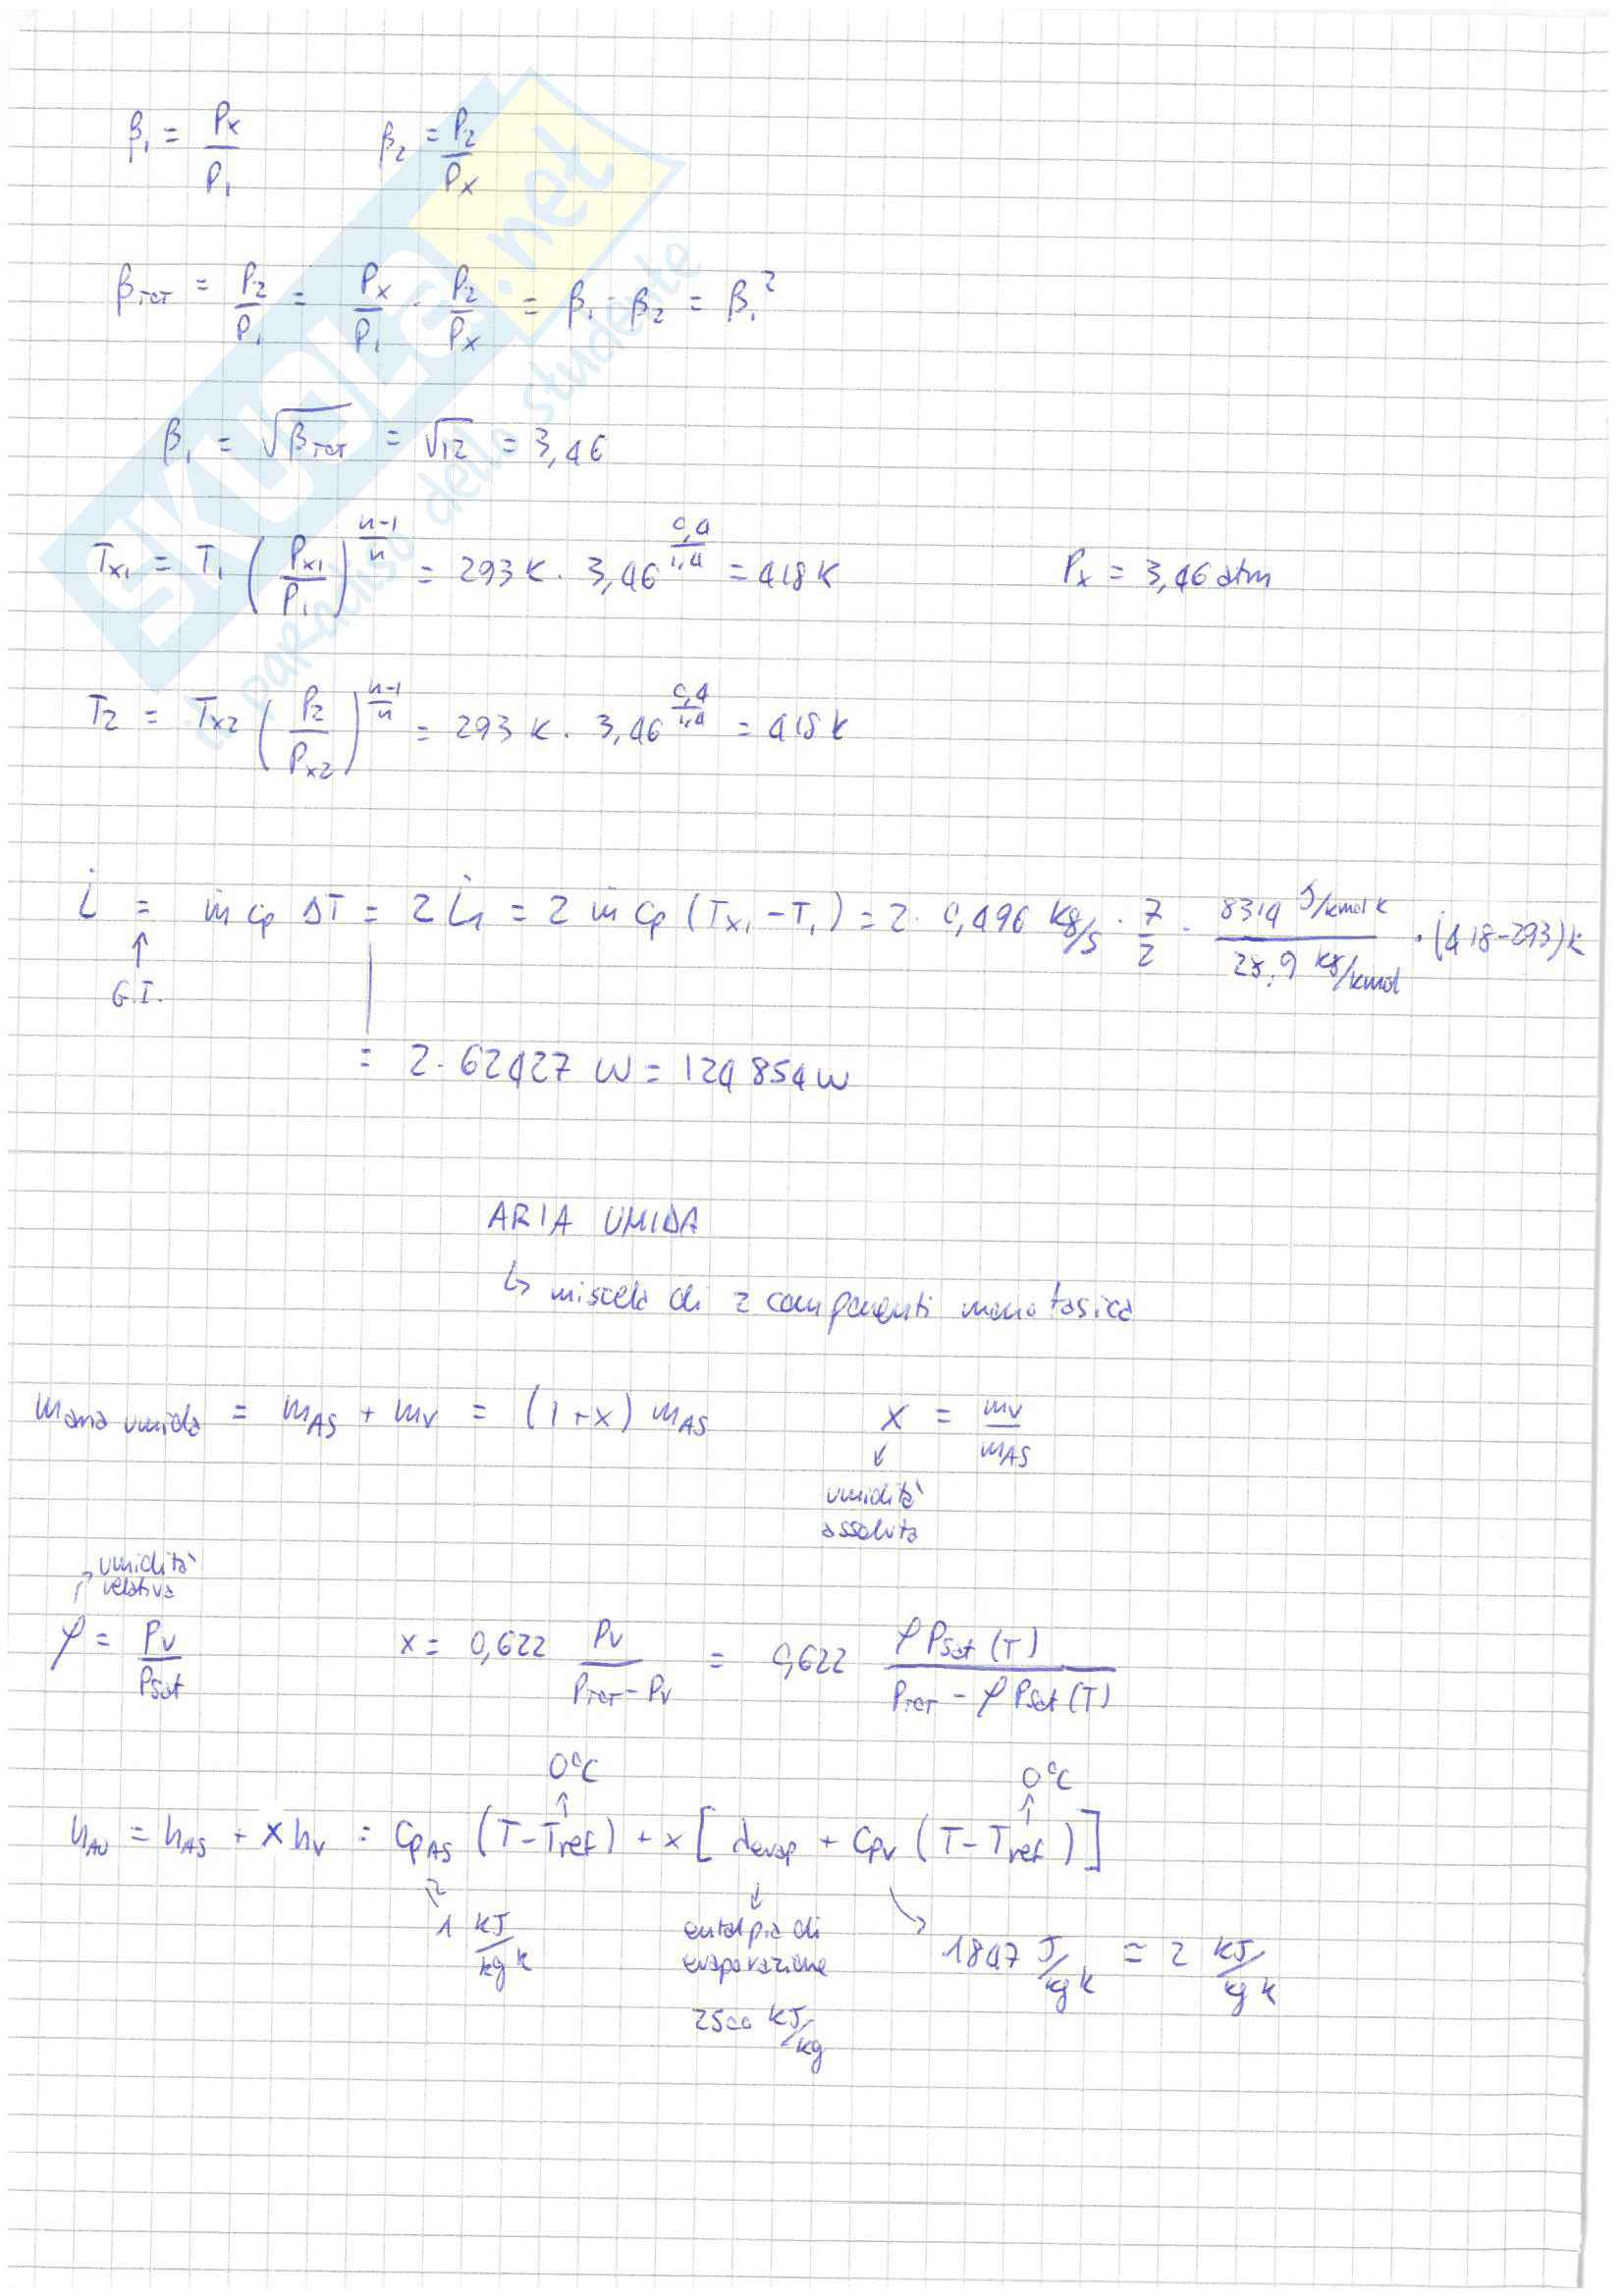 β₁ = Px/P₁    β₂ = P₂/Px
βTOT = P₂/P₁ = Px/P₁ · P₂/Px = β₁ · β₂ = β₁²
β₁ = √βTOT = √12 = 3,46
Tx₁ = T₁ (Px₁/P₁)^((n-1)/n) = 293 K · 3,46^(0,4/1,4) = 418 K    Px = 3,46 atm
T₂ = Tx₂ (P₂/Px₂)^((n-1)/n) = 293 K · 3,46^(0,4/1,4) = 418 K
L̇ = ṁ cp ΔT = 2 L̇₁ = 2 ṁ cp (Tx₁ - T₁) = 2 · 0,496 kg/s · 7/2 · (8314 J/kmol K)/(28,9 kg/kmol) · (418-293) K
↑
G.I.
= 2 · 62427 W = 124854 W
ARIA UMIDA
↳ miscela di 2 componenti monofasica
m aria umida = mAS + mV = (1+x) mAS    x = mV/mAS
↓
umidità
assoluta
umidità
relativa
φ = PV/Psat    x = 0,622 PV/(PTOT - PV) = 0,622 φ Psat (T)/(PTOT - φ Psat (T))
0°C    0°C
↑    ↑
hAU = hAS + x hV = cpAS (T - Tref) + x [devap + cpV (T - Tref)]
1 kJ/kg K    entalpia di    1847 J/kg K = 2 kJ/kg K
evaporazione
2500 kJ/kg
SKUOLA.net
il paradiso dello studente